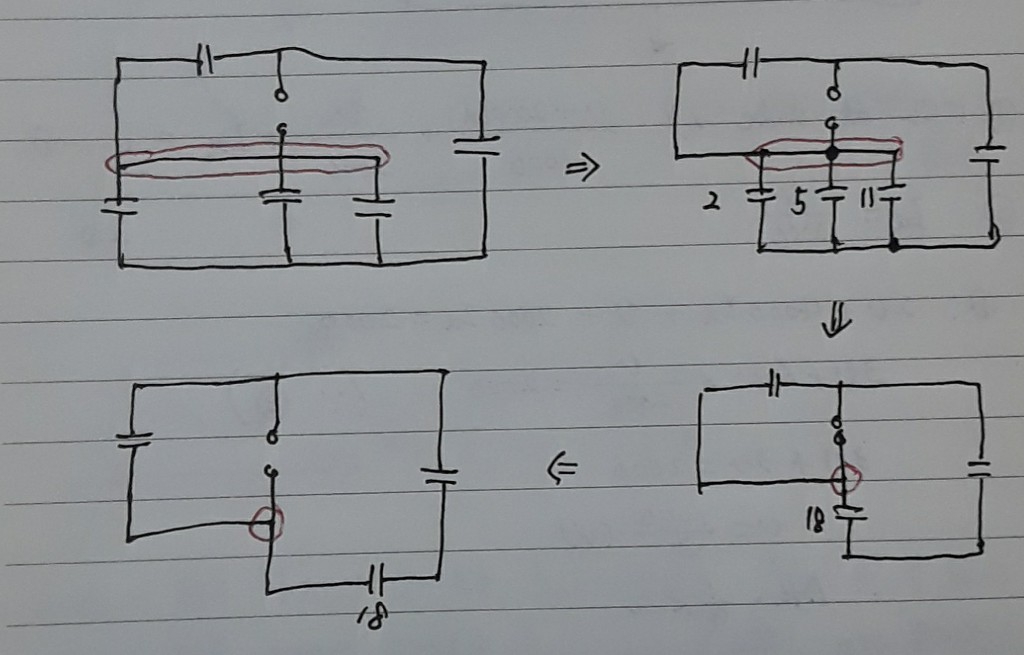 ⇒
2 5 11
⇓
18
⇐
18